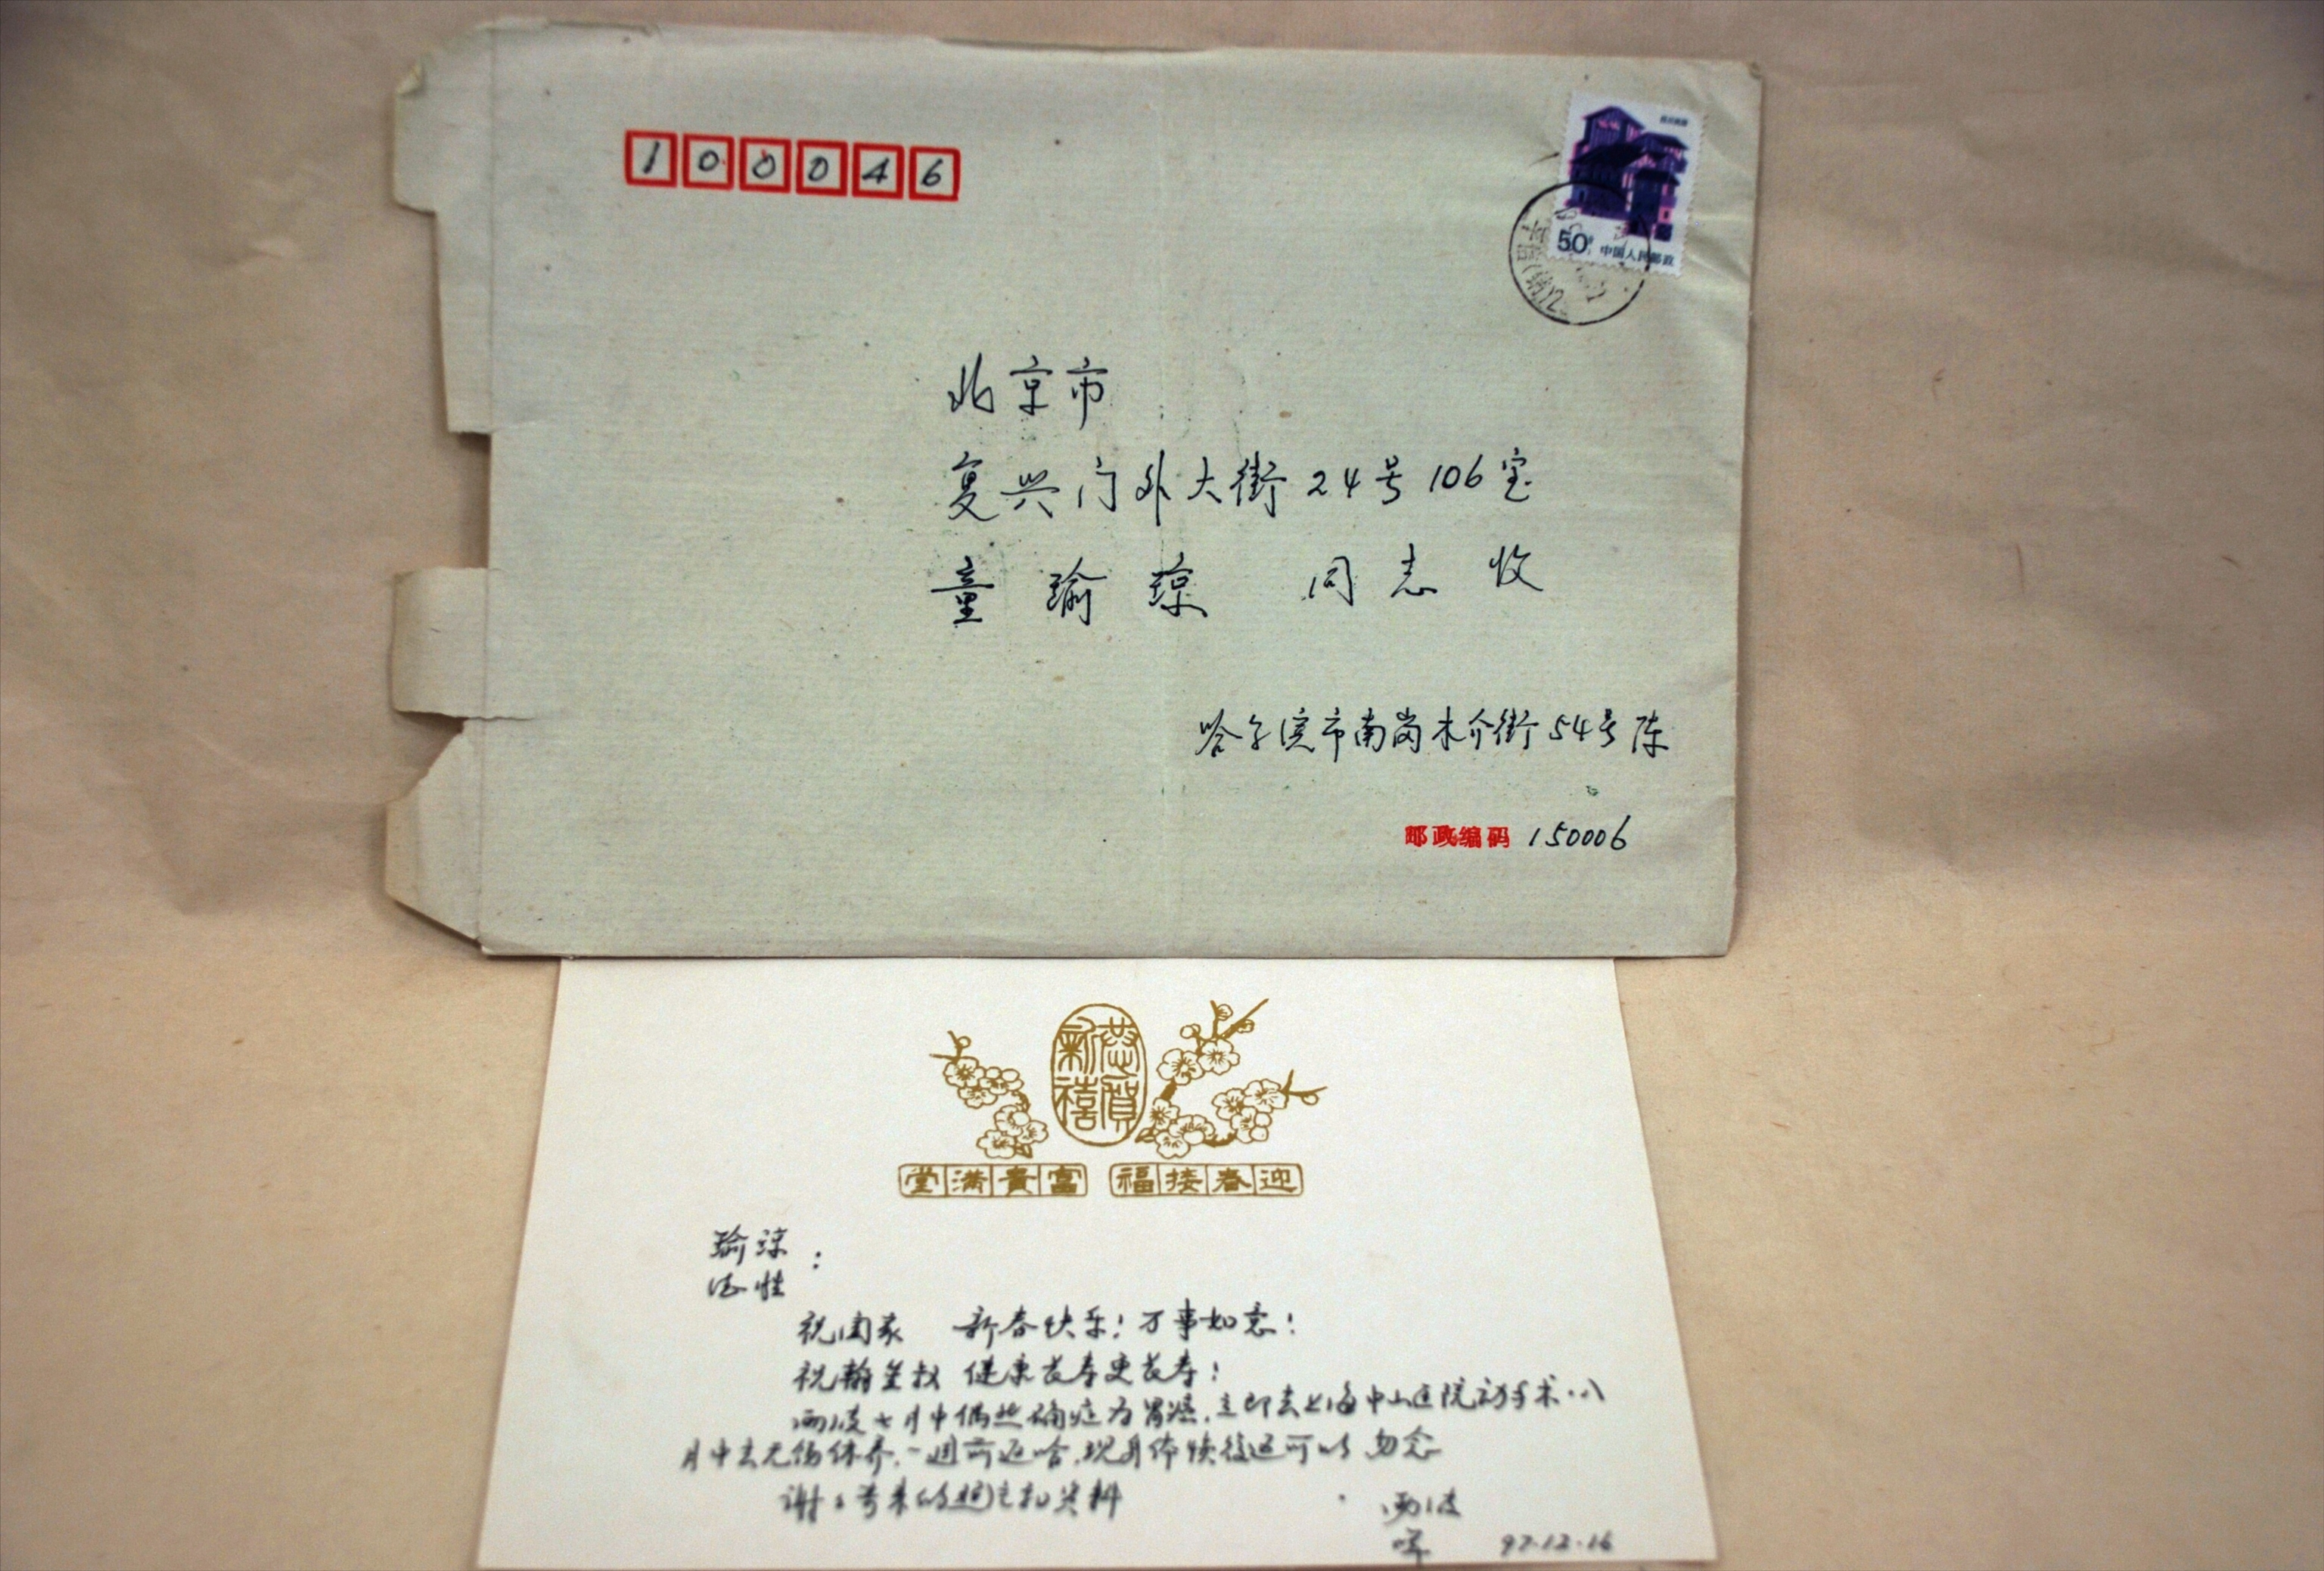 100046
50分 中国人民邮政
北京市
复兴门外大街24号106室
童瑜琼 同志收
哈尔滨市南岗木介街54号陈
邮政编码 150006
恭賀新禧
堂满貴富 福接春迎
瑜琼:
祝阖家 新春快乐!万事如意!
祝翰笙叔 健康长寿更长寿!
七月中偶然确症为胃癌.立即去上海中山医院动手术.八
月中去无锡休养.一週前返哈.现身体恢復还可以 勿念
谢谢寄来的照片和资料
97.12.16